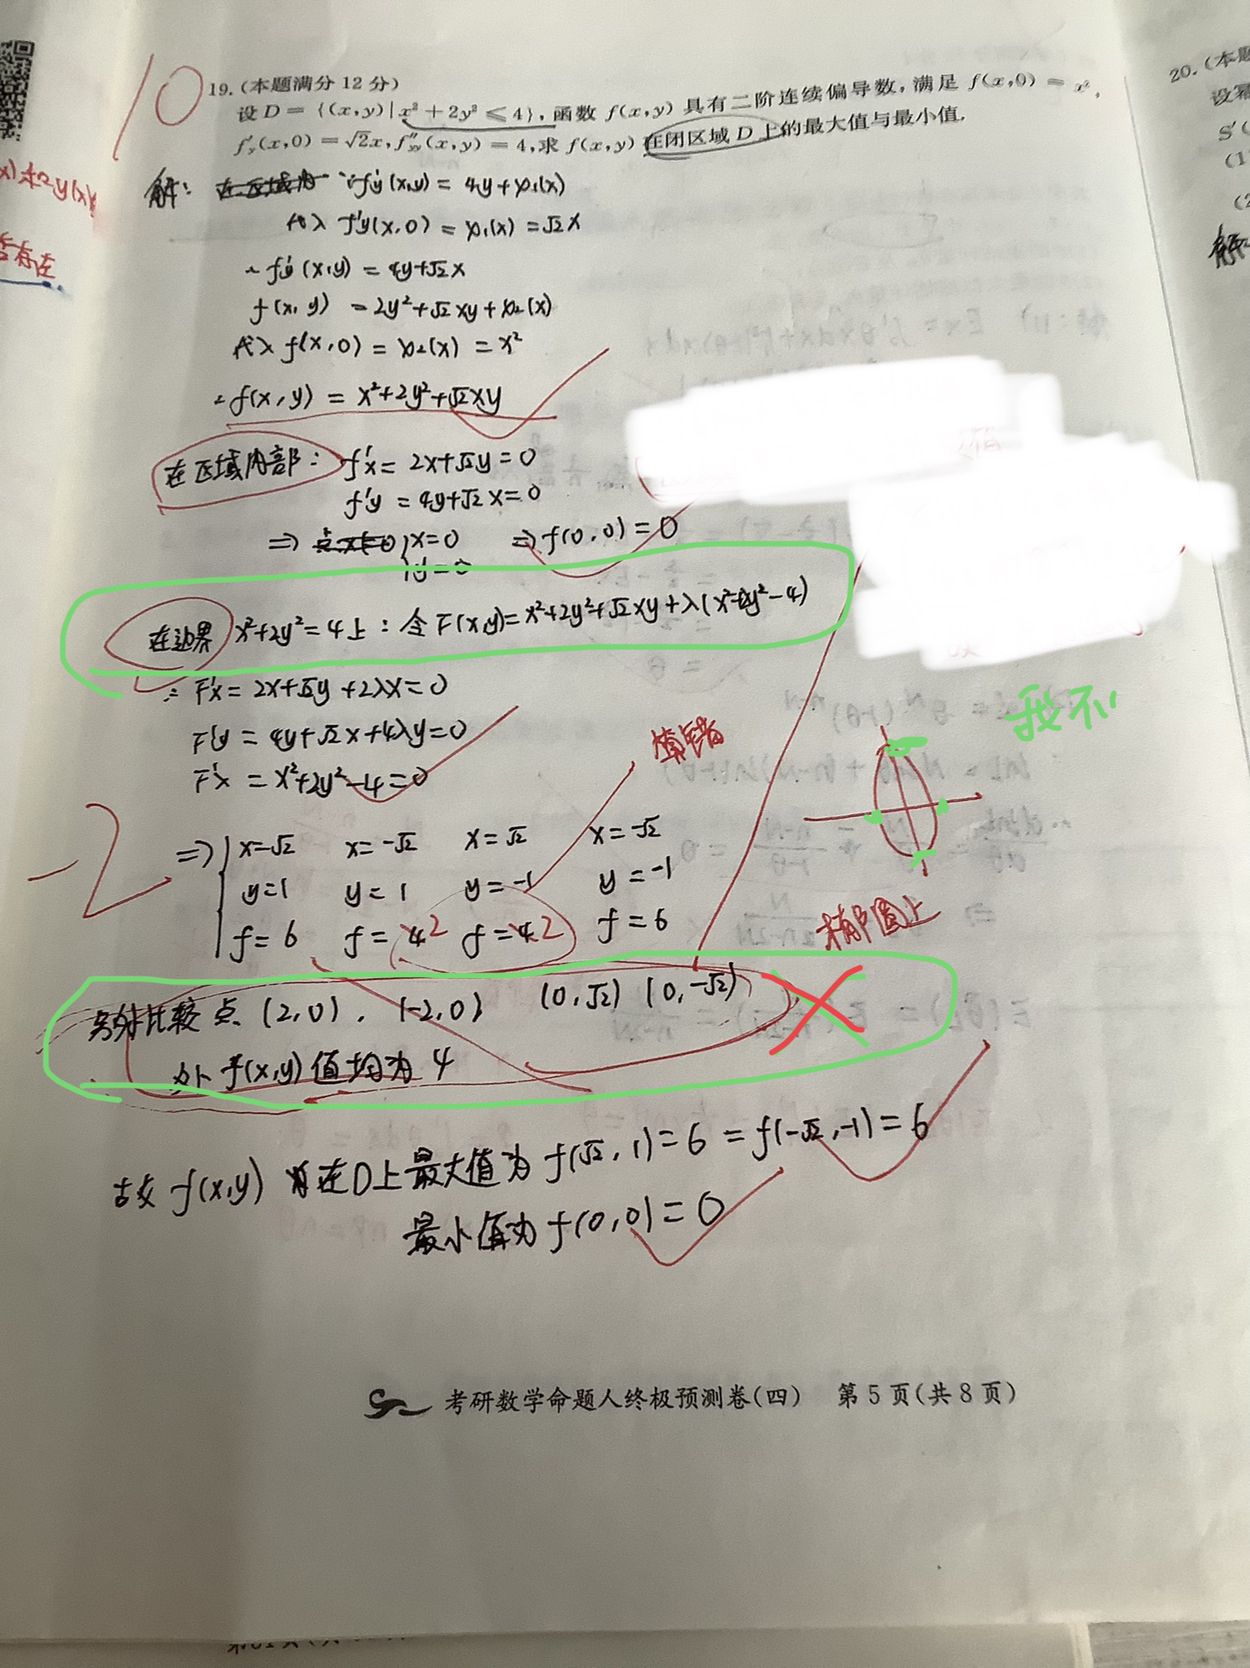 10
19.(本题满分 12 分)
设 D = {(x,y)|x² + 2y² ≤ 4},函数 f(x,y) 具有二阶连续偏导数,满足 f(x,0) = x²,
f′y(x,0) = √2x, f″yy(x,y) = 4,求 f(x,y) 在闭区域 D 上的最大值与最小值.
20.(本题
设幂
S′(
(1
(2
解:
x)和y(x)
否存在
解: ∵f′y(x,y) = 4y+φ1(x)
代入 f′y(x,0) = φ1(x) = √2x
∴ f′y(x,y) = 4y+√2x
f(x,y) = 2y²+√2xy+φ2(x)
代入 f(x,0) = φ2(x) = x²
∴ f(x,y) = x²+2y²+√2xy
在区域内部: f′x = 2x+√2y=0
f′y = 4y+√2x=0
⇒ x=0 ⇒ f(0,0)=0
y=0
在边界 x²+2y²=4上: 令F(x,y)=x²+2y²+√2xy+λ(x²+2y²-4)
∴ F′x = 2x+√2y+2λx=0
F′y = 4y+√2x+4λy=0
F′x = x²+2y²-4=0
算错
我不
-2
⇒ x=√2 x=-√2 x=√2 x=-√2
y=1 y=1 y=-1 y=-1
f=6 f=4 2 f=4 2 f=6
椭圆上
另外比较点 (2,0), (-2,0) (0,√2) (0,-√2)
处 f(x,y) 值均为 4
故 f(x,y) 在D上最大值为 f(√2,1)=6=f(-√2,-1)=6
最小值为 f(0,0)=0
考研数学命题人终极预测卷(四) 第 5 页(共 8 页)